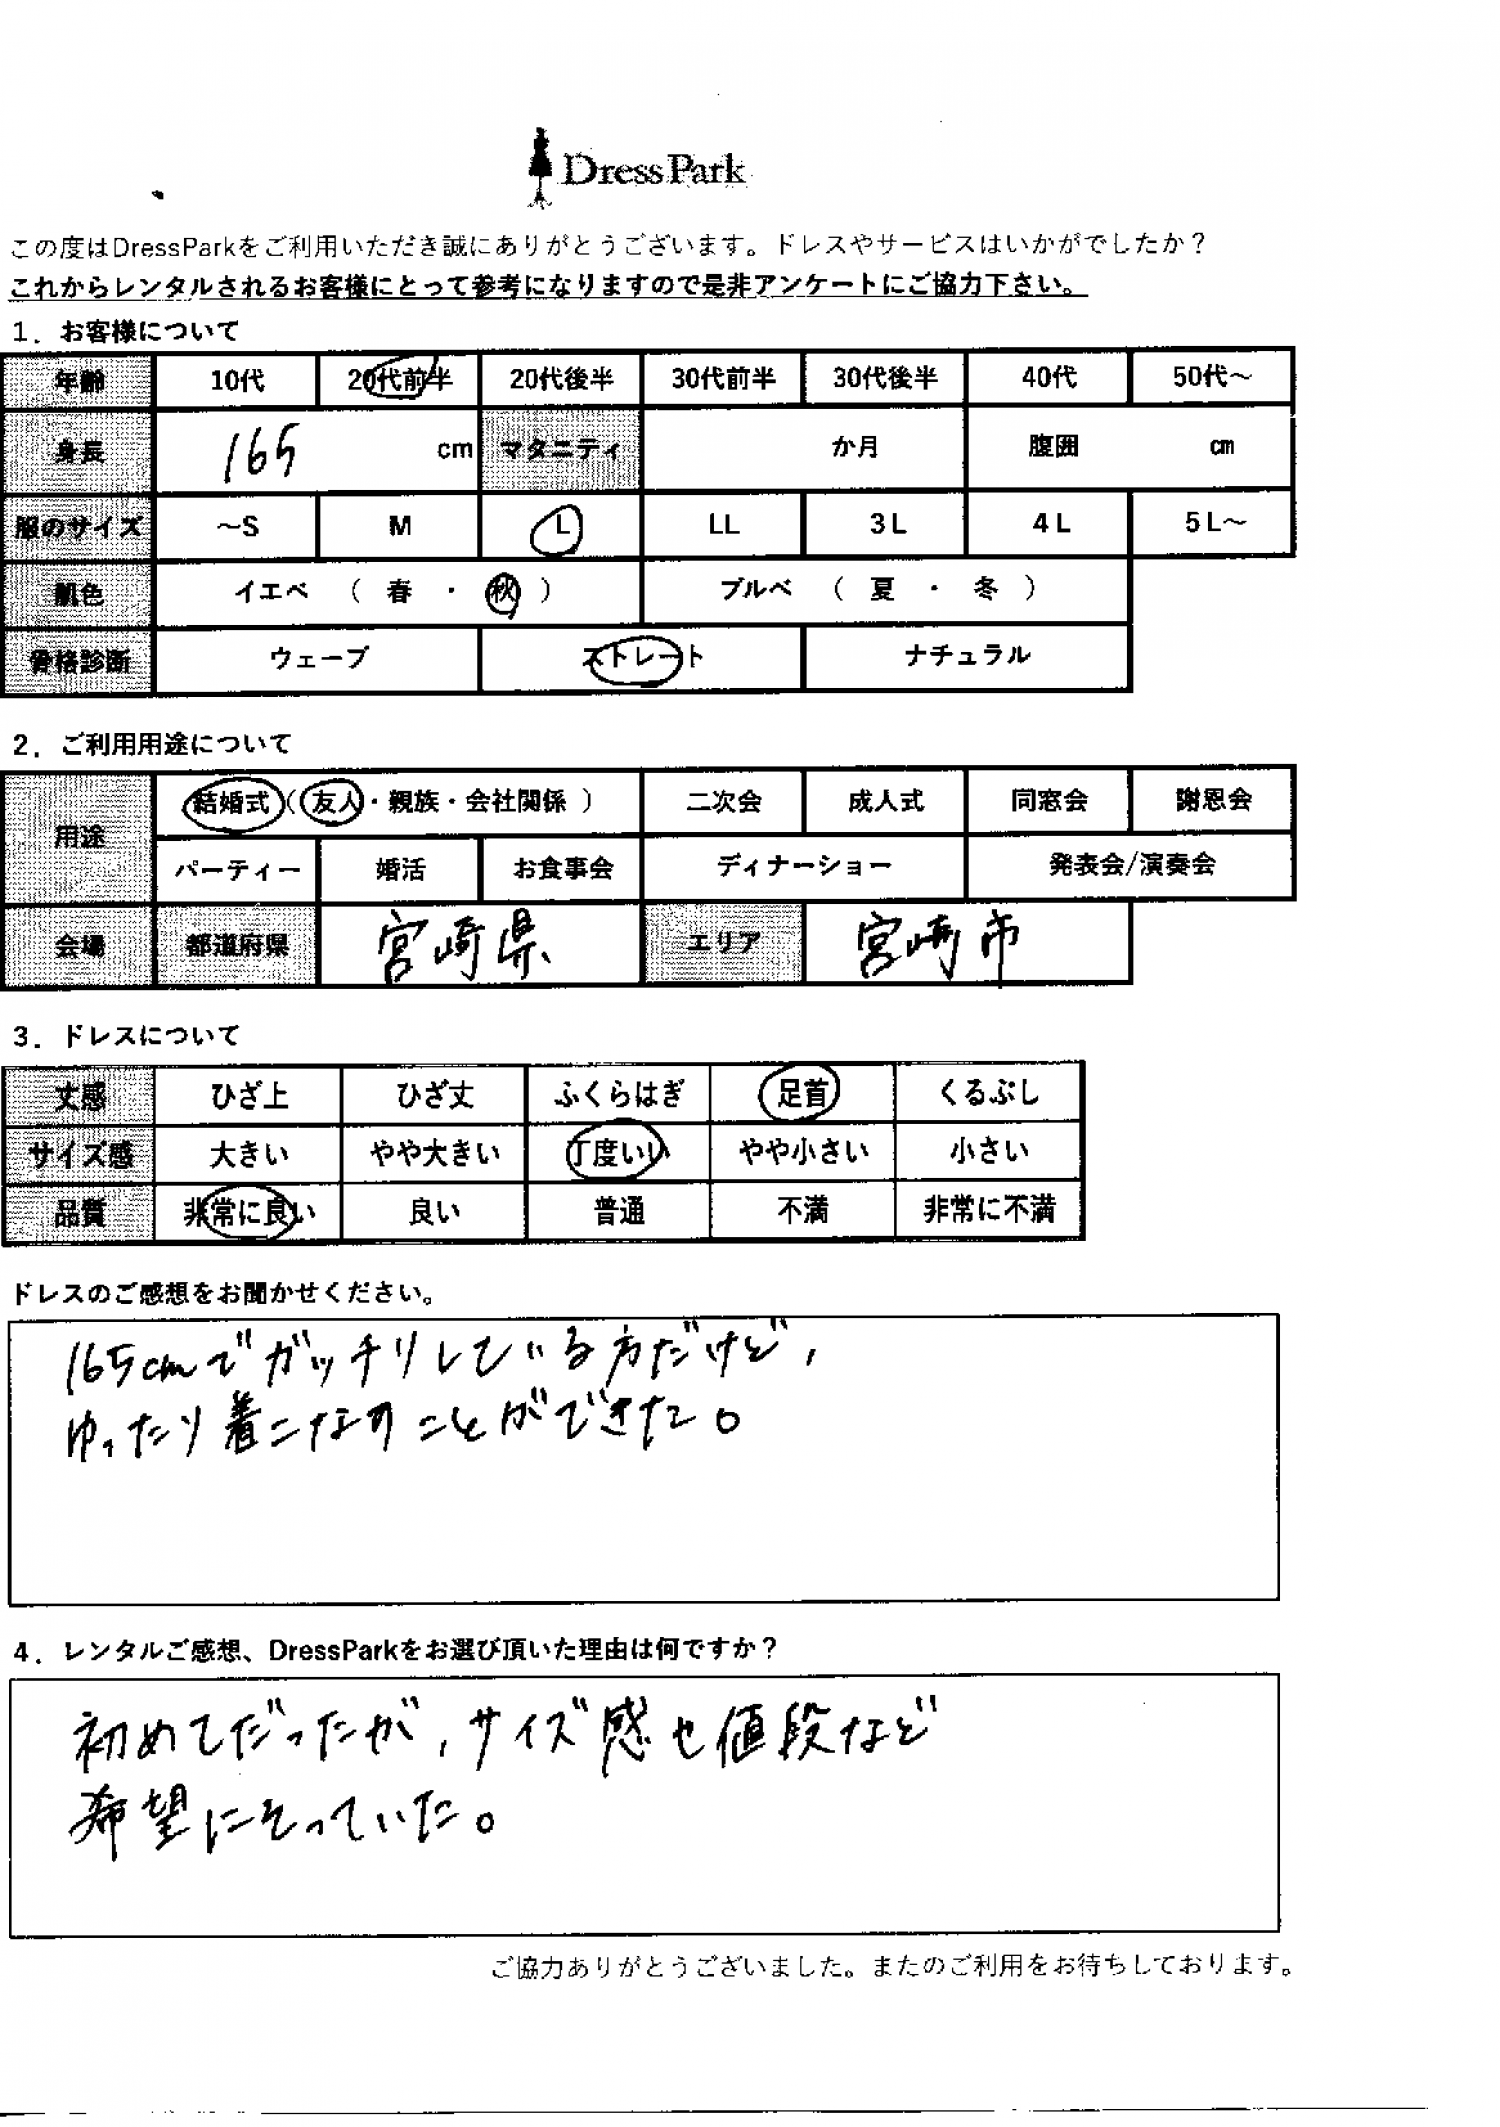 DressPark
この度はDressParkをご利用いただき誠にありがとうございます。ドレスやサービスはいかがでしたか？
これからレンタルされるお客様にとって参考になりますので是非アンケートにご協力下さい。
1．お客様について
年齢 10代 20代前半 20代後半 30代前半 30代後半 40代 50代～
身長 165 cm マタニティ か月 腹囲 cm
服のサイズ ～S M L LL 3L 4L 5L～
肌色 イエベ （ 春 ・ 秋 ） ブルベ （ 夏 ・ 冬 ）
骨格診断 ウェーブ ストレート ナチュラル
2．ご利用用途について
用途 結婚式（友人・親族・会社関係 ） 二次会 成人式 同窓会 謝恩会
パーティー 婚活 お食事会 ディナーショー 発表会/演奏会
会場 都道府県 宮崎県 エリア 宮崎市
3．ドレスについて
丈感 ひざ上 ひざ丈 ふくらはぎ 足首 くるぶし
サイズ感 大きい やや大きい 丁度いい やや小さい 小さい
品質 非常に良い 良い 普通 不満 非常に不満
ドレスのご感想をお聞かせください。
165cmでガッチリしている方だけど，
ゆったり着こなすことができた。
4．レンタルご感想、DressParkをお選び頂いた理由は何ですか？
初めてだったが，サイズ感も値段など
希望にそっていた。
ご協力ありがとうございました。またのご利用をお待ちしております。